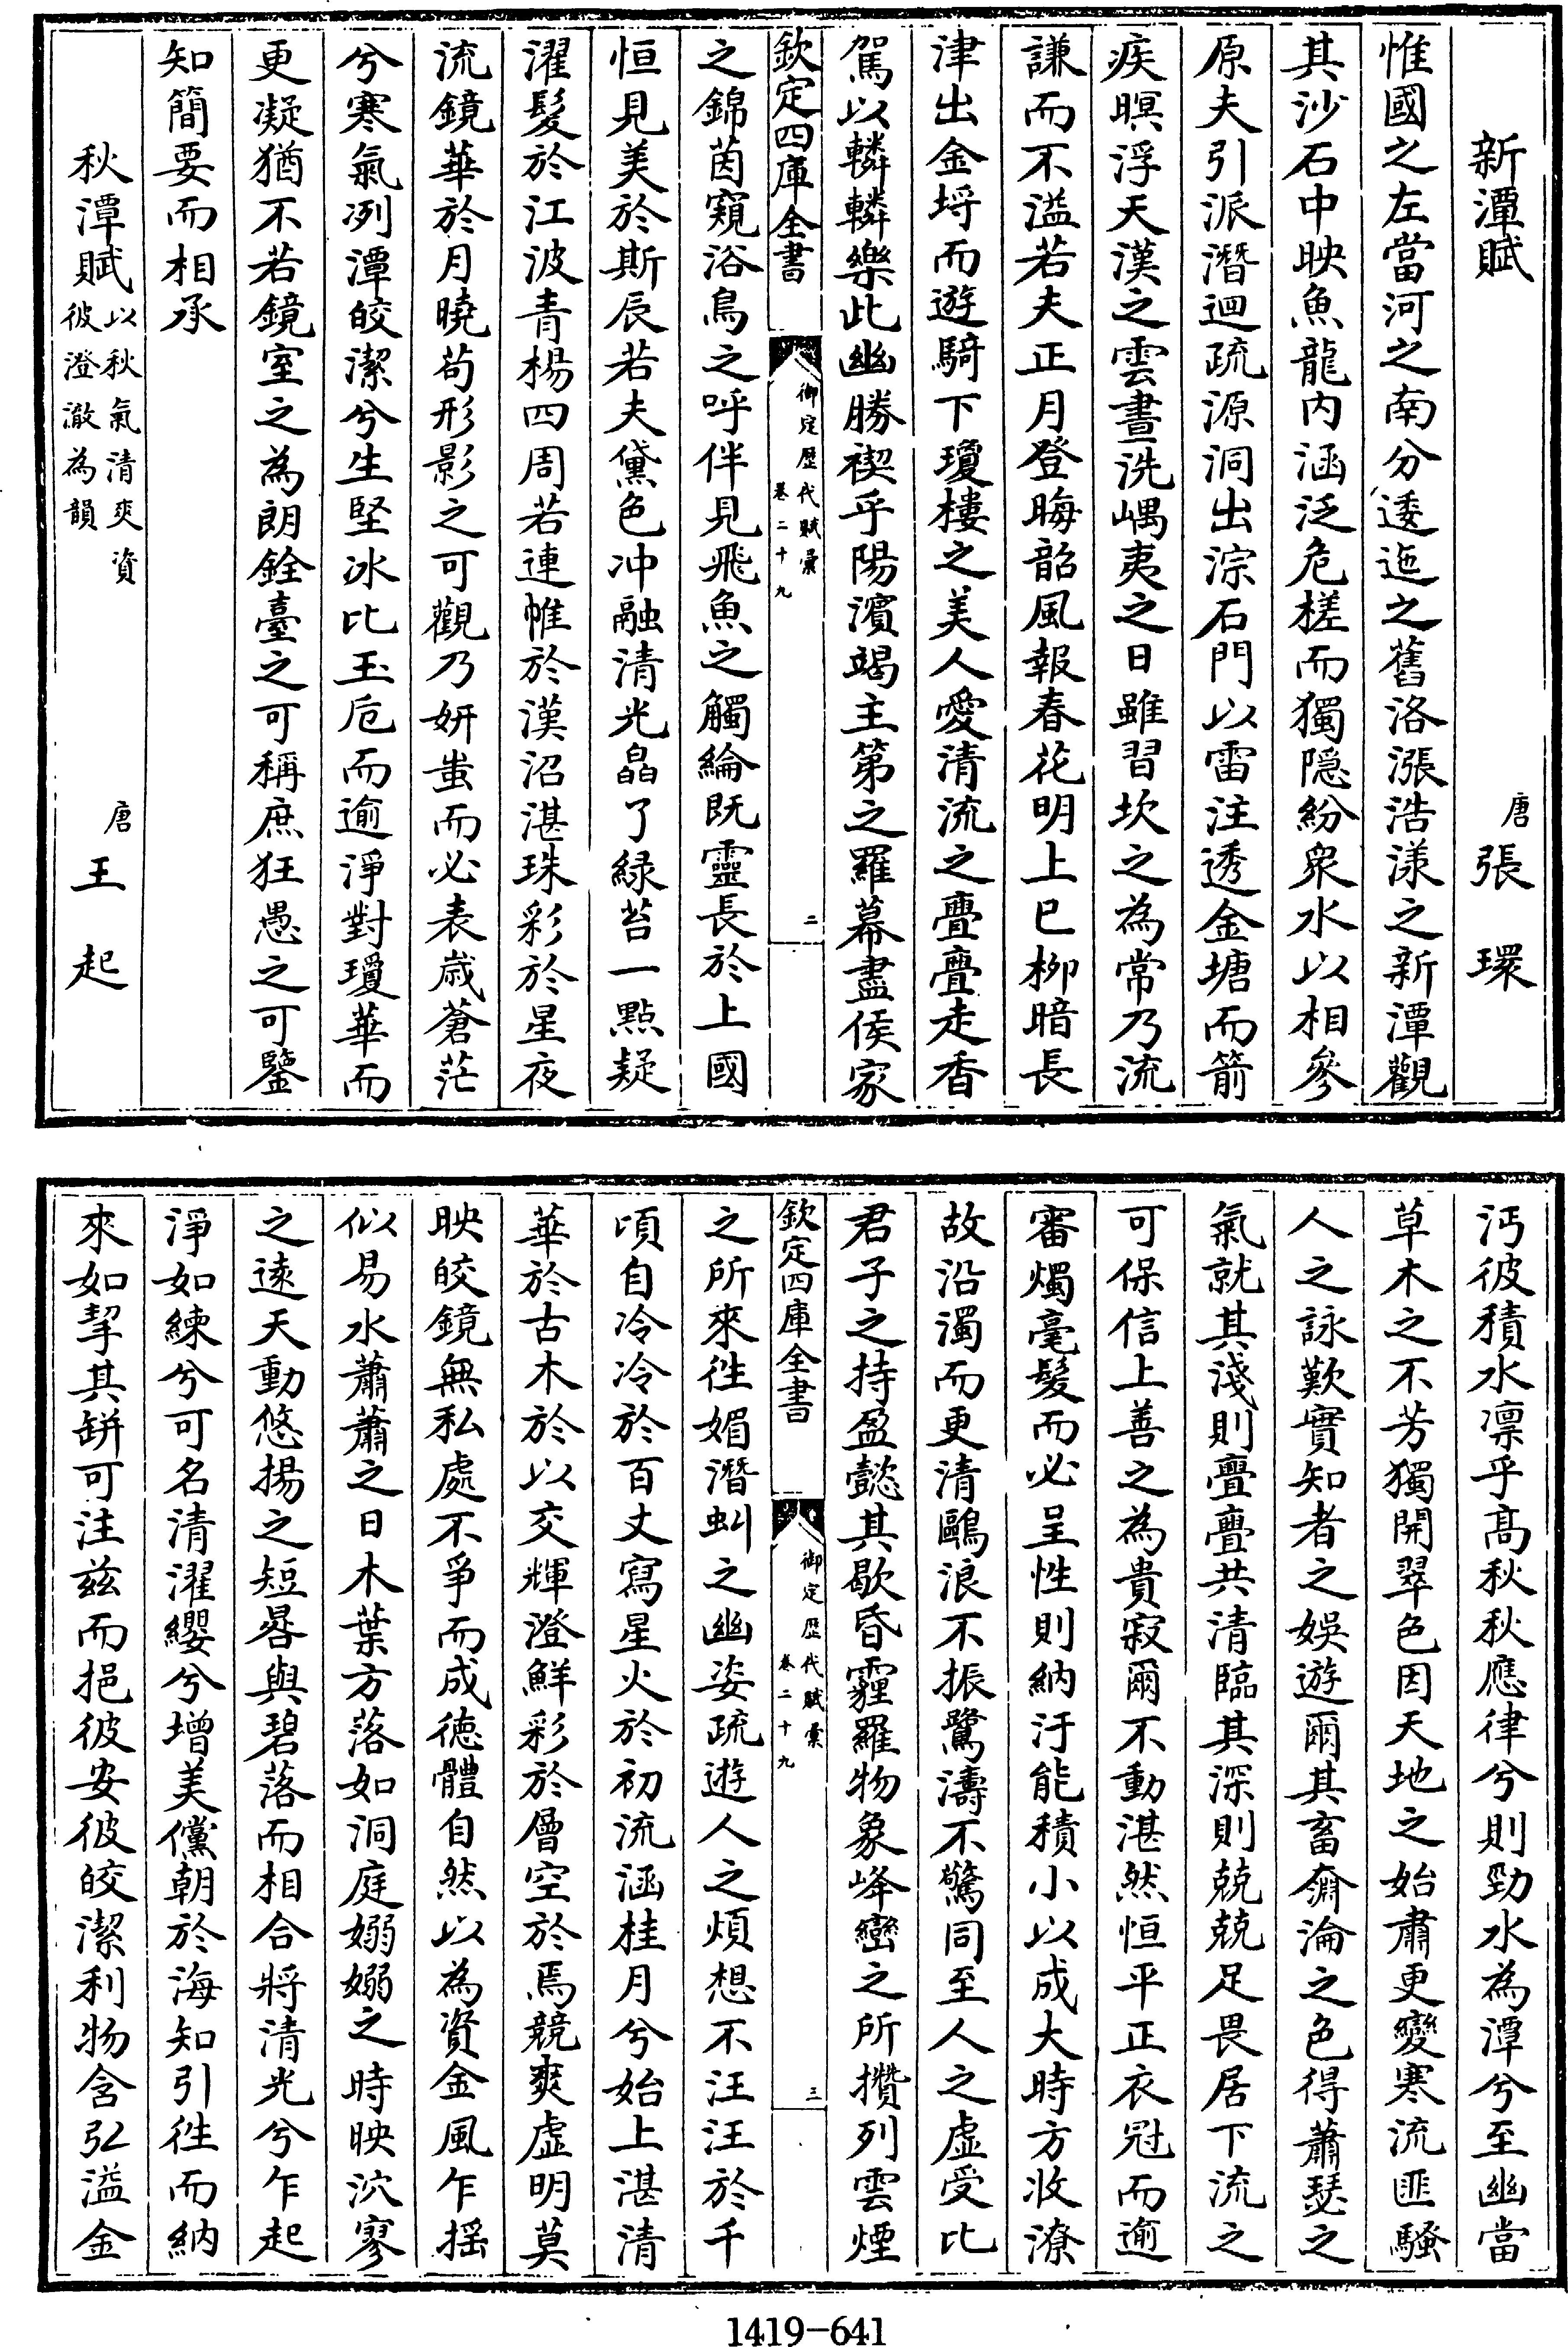 新潭賦
唐張環
惟國之左當河之南分逶迤之舊洛漲浩漾之新潭觀
其沙石中映魚龍内涵泛危槎而獨隠紛衆水以相參
原夫引派潛迴疏源洞出淙石門以雷注透金塘而箭
疾暝浮天漢之雲晝洗嵎夷之日雖習坎之為常乃流
謙而不溢若夫正月登晦韶風報春花明上巳柳暗長
津出金埒而遊騎下瓊樓之美人愛清流之疊疊走香
駕以轔轔樂此幽勝禊乎陽濱竭主第之羅幕盡侯家
欽定四庫全書
御定歷代賦彙
卷二十九
二
之錦茵窺浴鳥之呼伴見飛魚之觸綸既靈長於上國
恒見美於斯辰若夫黛色冲融清光皛了緑苔一點疑
濯髮於江波青楊四周若連帷於漢沼湛珠彩於星夜
流鏡華於月曉苟形影之可觀乃妍蚩而必表歳蒼茫
兮寒氣冽潭皎潔兮生堅冰比玉巵而逾淨對瓊華而
更凝猶不若鏡室之為朗銓臺之可稱庶狂愚之可鑒
知簡要而相承
秋潭賦以秋氣清爽資
彼澄澈為韻
唐王起
沔彼積水凛乎髙秋秋應律兮則勁水為潭兮至幽當
草木之不芳獨開翠色因天地之始肅更變寒流匪騷
人之詠歎實知者之娛遊爾其畜奫淪之色得蕭瑟之
氣就其淺則疊疊共清臨其深則兢兢足畏居下流之
可保信上善之為貴寂爾不動湛然恒平正衣冠而逾
審燭毫髮而必呈性則納汙能積小以成大時方收潦
故沿濁而更清鷗浪不振鷺濤不驚同至人之虛受比
君子之持盈懿其歇昏霾羅物象峰巒之所攢列雲煙
欽定四庫全書
御定歷代賦彙
卷二十九
三
之所來徃媚潛虬之幽姿疏遊人之煩想不汪汪於千
頃自冷冷於百丈寫星火於初流涵桂月兮始上湛清
華於古木於以交輝澄鮮彩於層空於焉競爽虛明莫
映皎鏡無私處不爭而成徳體自然以為資金風乍揺
似易水蕭蕭之日木葉方落如洞庭嫋嫋之時映泬寥
之逺天動悠揚之短晷與碧落而相合將清光兮乍起
淨如練兮可名清濯纓兮增美儻朝於海知引徃而納
來如挈其缾可注兹而挹彼安彼皎潔利物含弘溢金
1419-641